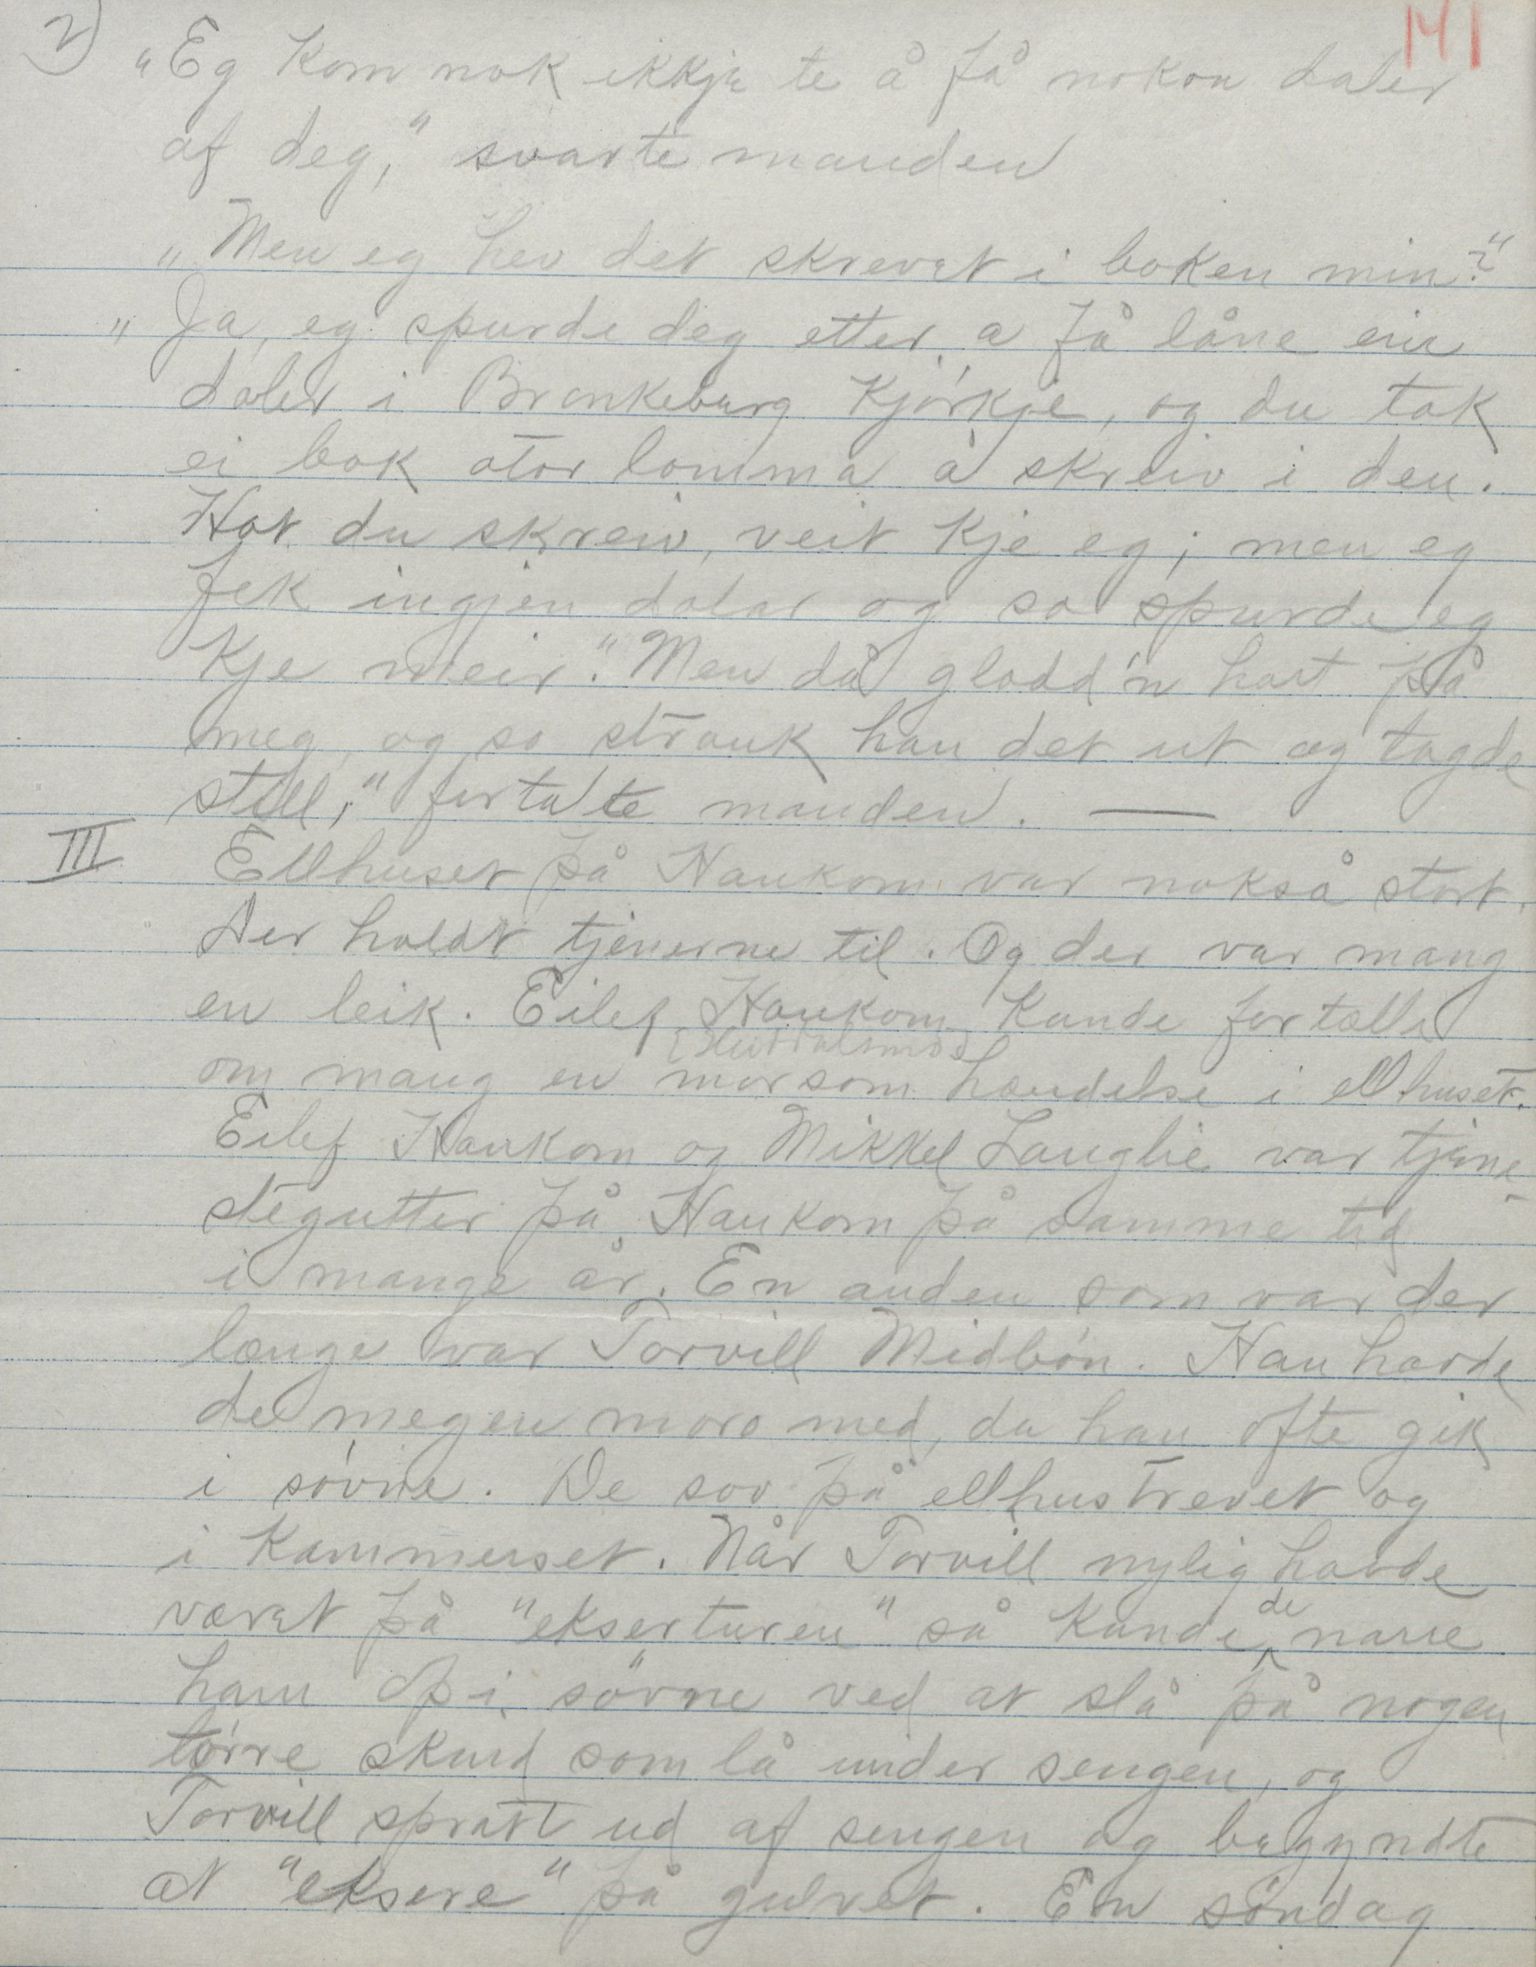 2) 141
"Eg kom nok ikkje te å få nokon daler
af deg," svarte manden
"Men eg hev det skrevet i boken min?"
"Ja, eg spurde deg etter a få låne ein
daler i Brunkeberg Kjørkje, og du tok
ei bok otor lomma å skreiv i den.
Hot du skreiv, veit kje eg; men eg
fek ingjen dalar og so spurde eg
kje meir." Men då glodd'n hart på
meg, og so strauk han det ut og tagde
still," fortalte manden. —
III Ellhuset på Haukom var nokså stort.
Der holdt tjenerne til. Og der var mang
en leik. Eilef Haukom kunde fortælle
om mang en morsom hændelse i ellhuset.
Eilef Haukom og Mikkel Langlie var tjene-
stegutter på Haukom på samme tid
i mange år. En anden som var der
længe var Torvill Midbøn. Han havde
de megen moro med, da han ofte gik
i søvne. De sov på ellhustrevet og
i Kammerset. Når Torvill nylig havde
været på "ekserturen" så kunde de narre
ham op i søvne ved at slå på nogen
tørre skind som lå under sengen, og
Torvill spratt ud af sengen og begyndte
at "eksere" på gulvet. En søndag